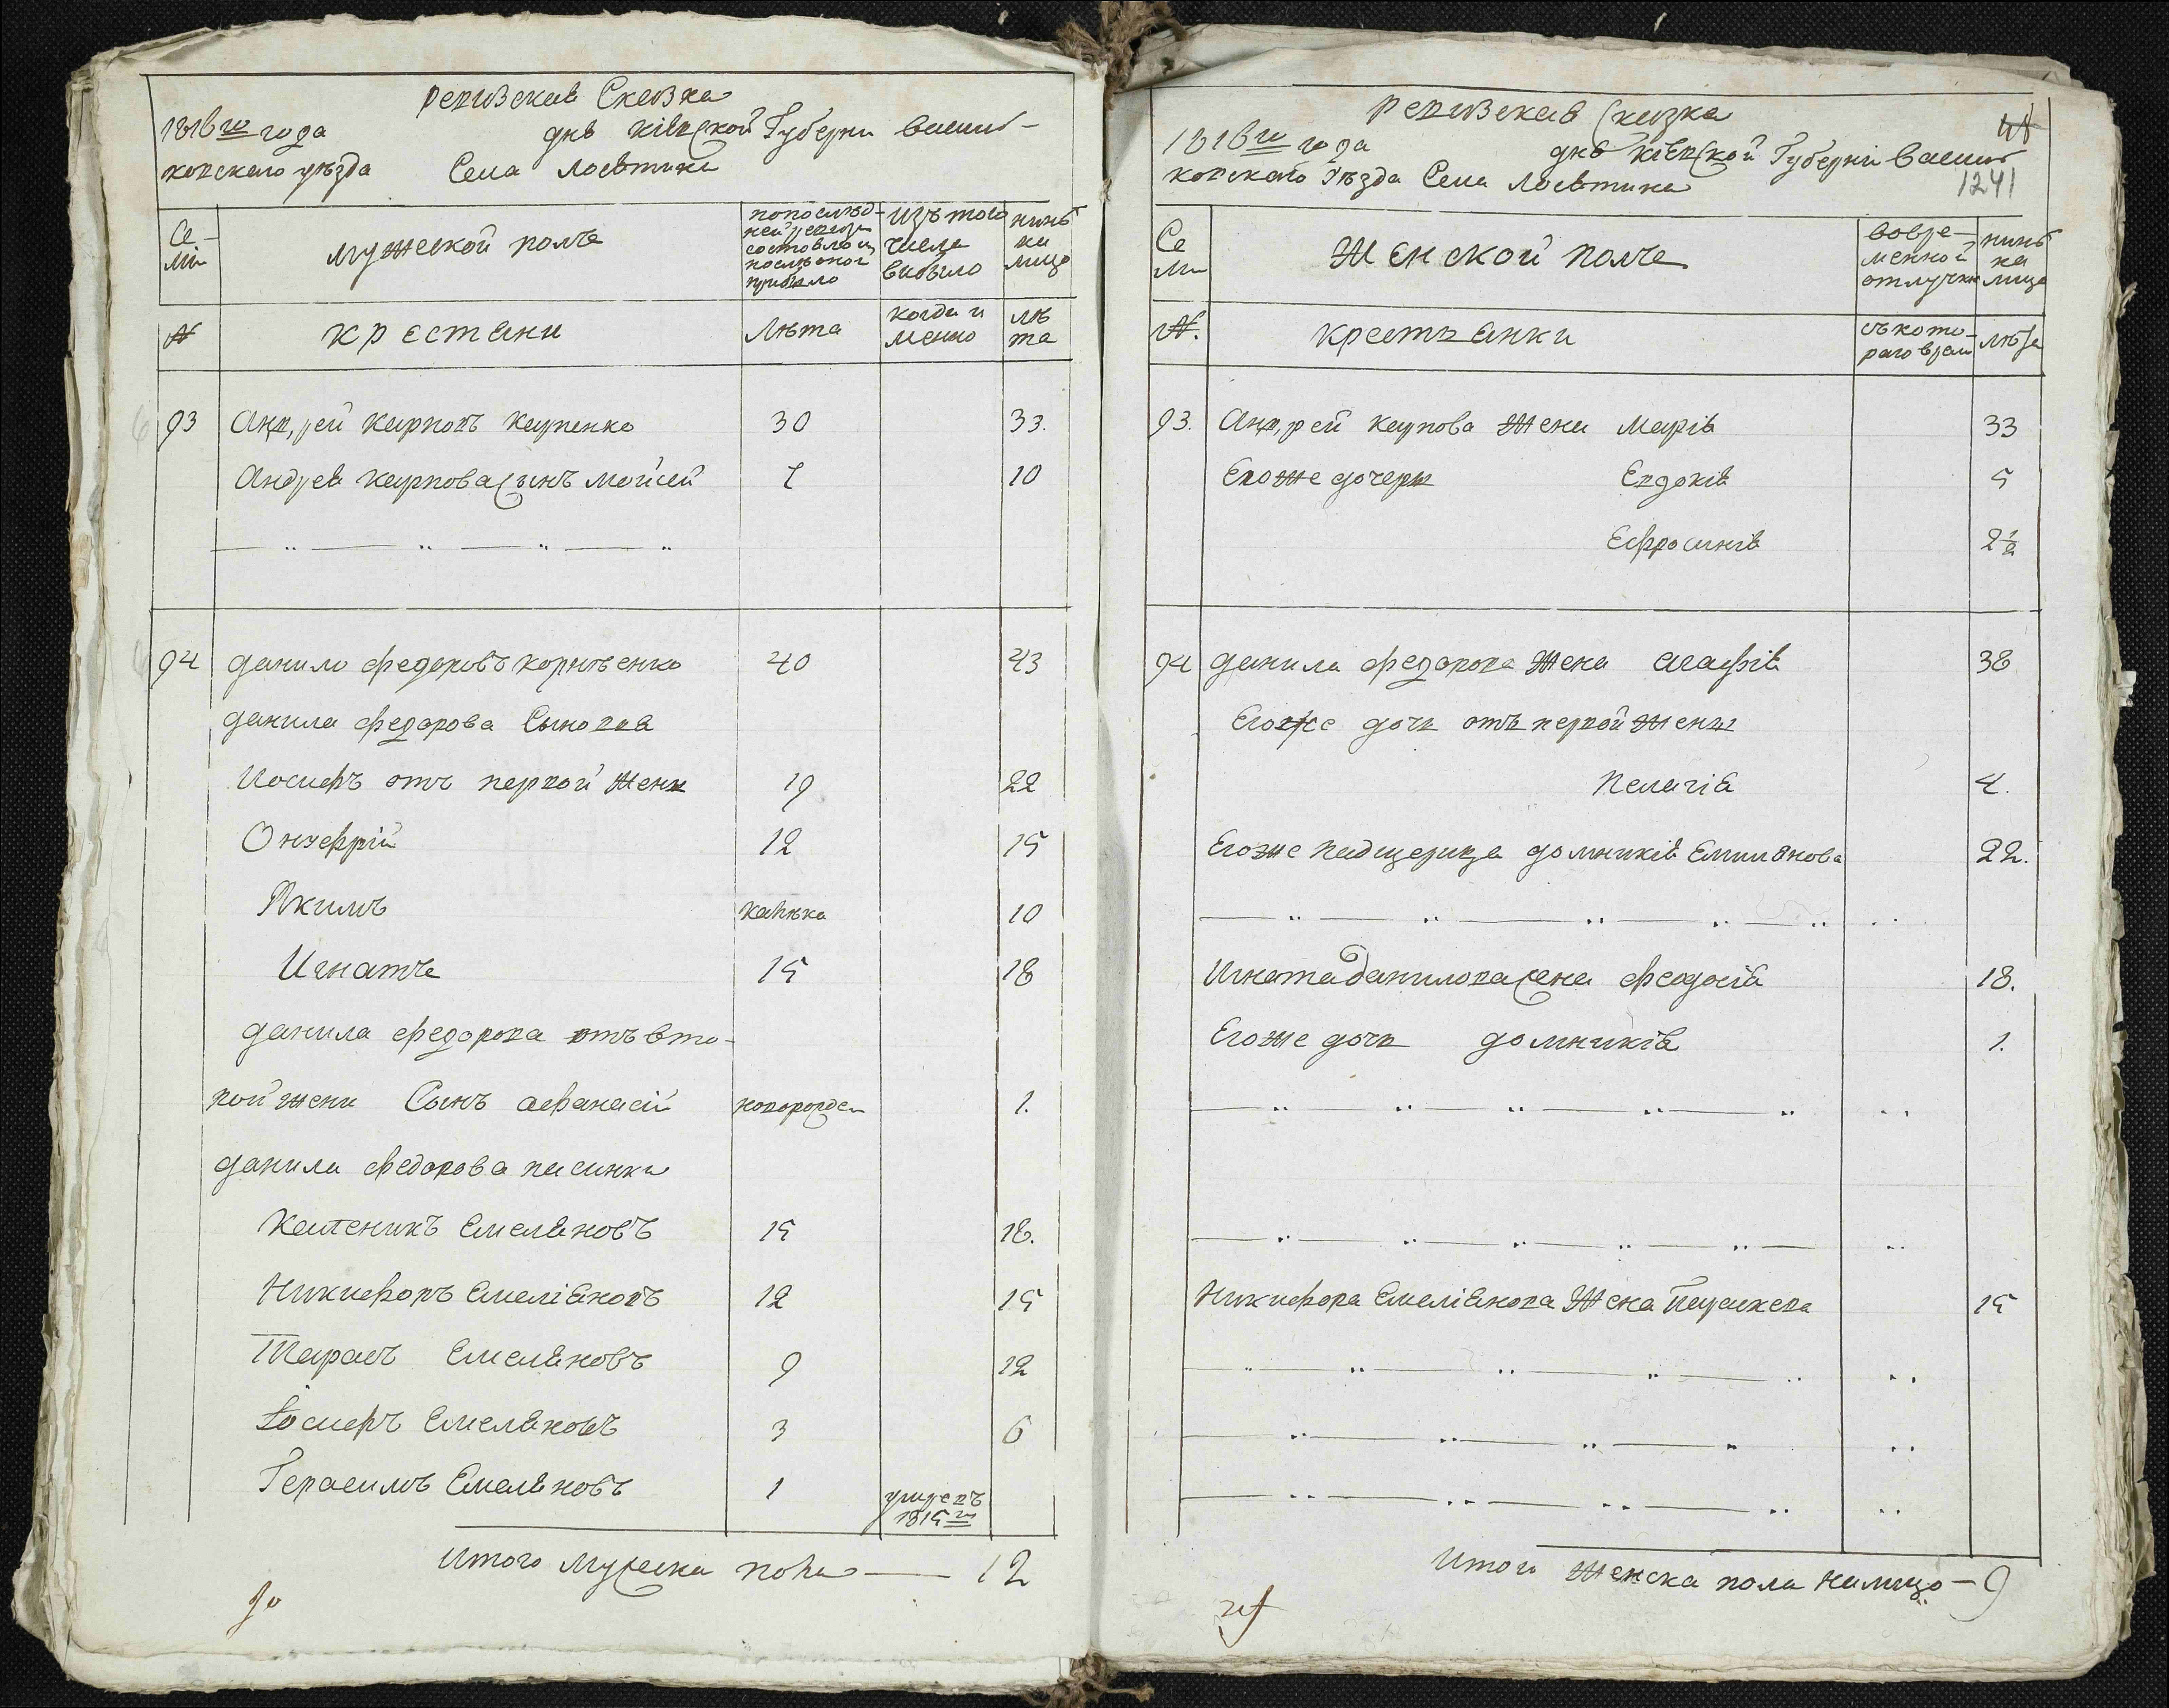 ревизская Сказка
1816го года дня кіевской Губерни васил-
ковского уезда Села Лосятина
Се-
мьи
мужеской полъ
попослед-
ней ревизи
состояло и
после оной
прибыло
изъ того
числа
выбыло
ныне
на
лицо
№
крестяни
Лета
когда и
менно
ле
та
93 Андрей Карповъ Карпенко 30 33.
Андрея Карпова сынъ Мойсей 7 10
94 данило федоровъ корнеенко 40 43
данила федорова Сыновья
Иосифъ отъ первой жены 19 22
Онуфрій 12 15
Якимъ 10
Игнатъ 15 18
данила федорова отъ вто-
рой жены Сынъ афанасій новорожден 1.
данила федорова пасинки
Каленикъ Емеляновъ 15 18.
Никифоръ Емеліяновъ 12 15
Тарасъ Емеляновъ 9 12
Іосифъ Емеляновъ 3 6
Герасимъ Емеляновъ 1 умре въ
1815м
Итого мужеска пола — 12
ревизская Сказка
48
1816го года дня кіевской Губерніи васил
1241
ковского уезда Села Лосятина
Се
мьи
Женской полъ
вовре-
менной
отлучки
ныне
на
лицо
№.
крестьянки
съ кото-
раго врем
лета
93. Андрей карпова Жена Марія 33
Егоже дочери Евдокія 5
Ефросинія 2½
94 данила федорова Жена агафія 38
Егоже дочь отъ первой жены
Пелагія 4.
Егоже падщерица домникія Емилянова 22.
Игната данилова жена феодосія 18.
Егоже дочь домникія 1.
Никифора Емеліянова Жена Параскева 15
Итого женска пола налицо — 9